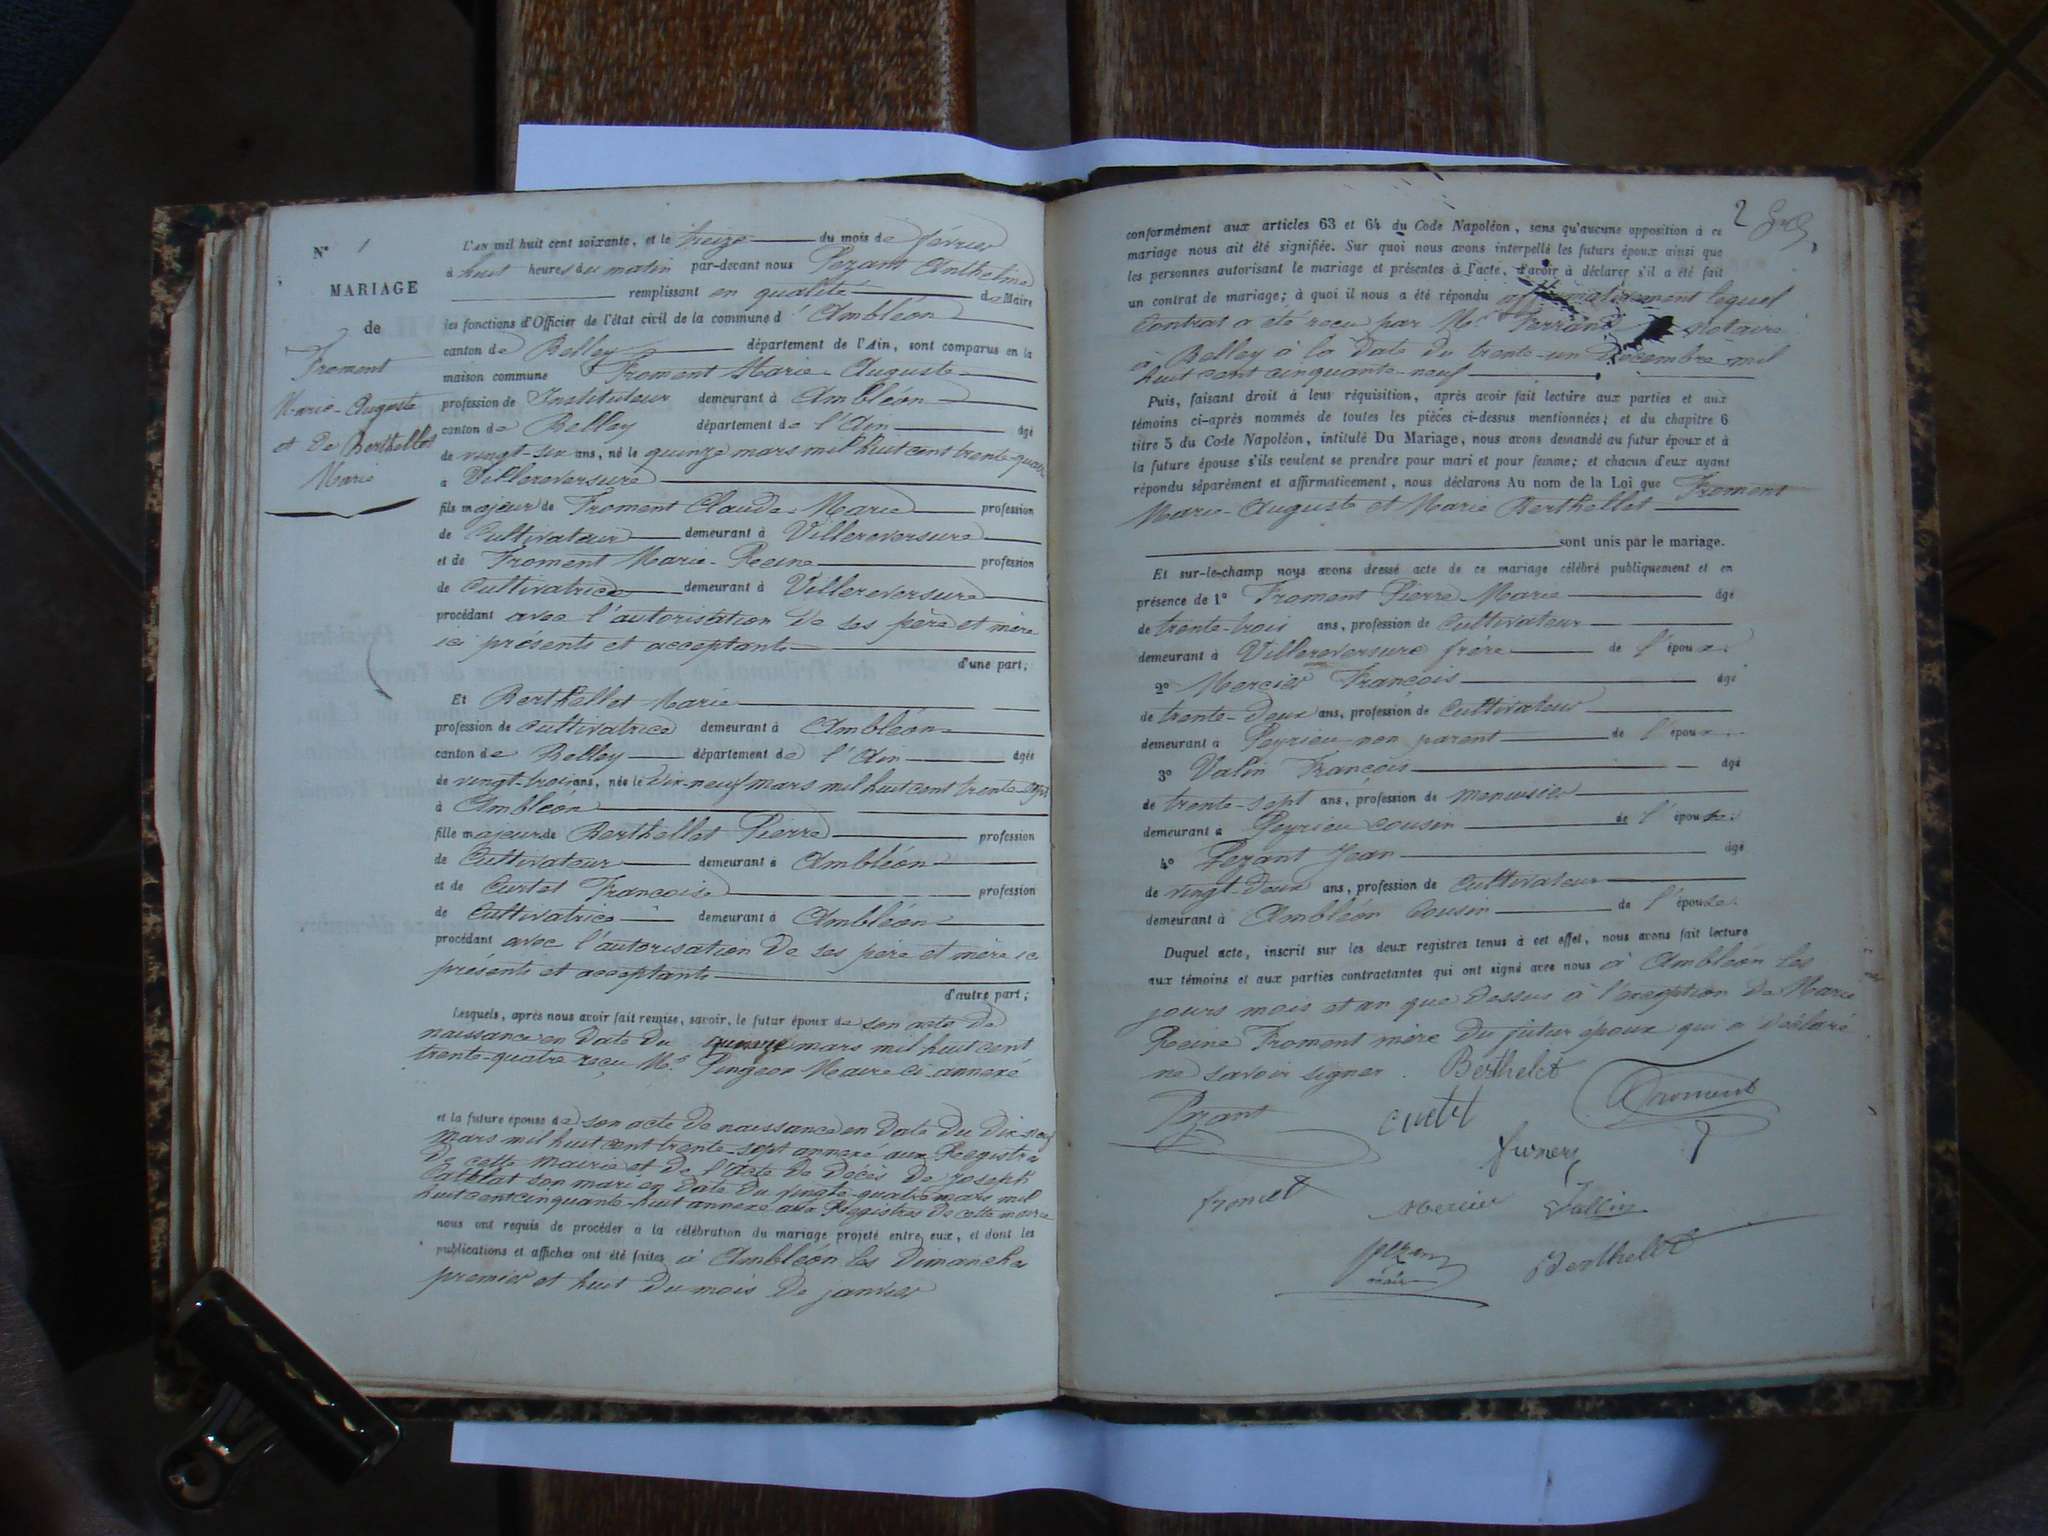 N° 1
MARIAGE
de
Froment
Marie-Auguste
et de Berthellet
Marie
L'AN mil huit cent soixante, et le treize du mois de février
à huit heures du matin par-devant nous Pezant Anthelme
remplissant en qualité de Maire
les fonctions d'Officier de l'état civil de la commune d'Ambléon
canton de Belley département de l'Ain, sont comparus en la
maison commune Froment Marie-Auguste
profession de Instituteur demeurant à Ambléon
canton de Belley département de l'Ain âgé
de vingt-six ans, né le quinze mars mil huit cent trente-quatre
à Villereversure
fils majeur de Froment Claude-Marie profession
de Cultivateur demeurant à Villereversure
et de Froment Marie-Reine profession
de Cultivatrice demeurant à Villereversure
procédant avec l'autorisation de ses père et mère
ici présents et acceptants
d'une part;
Et Berthellet Marie
profession de cultivatrice demeurant à Ambléon
canton de Belley département de l'Ain âgée
de vingt-trois ans, née le dix-neuf mars mil huit cent trente-sept
à Ambléon
fille majeur de Berthellet Pierre profession
de Cultivateur demeurant à Ambléon
et de Curtet Françoise profession
de Cultivatrice demeurant à Ambléon
procédant avec l'autorisation de ses père et mère ici
présents et acceptants
d'autre part;
Lesquels, après nous avoir fait remise, savoir, le futur époux de son acte de
naissance en date du quinze mars mil huit cent
trente-quatre reçu Mr. Pingeon Maire ci-annexé
et la future épouse de son acte de naissance en date du dix-neuf
mars mil huit cent trente-sept annexé aux Registres
de cette mairie et de l'acte de décès de Joseph
son mari en date du vingt-quatre mars mil
huit cent cinquante-huit annexé aux Registres de cette mairie
nous ont requis de procéder à la célébration du mariage projeté entre eux, et dont les
publications et affiches ont été faites à Ambléon les Dimanches
premier et huit du mois de janvier
2
conformément aux articles 63 et 64 du Code Napoléon, sans qu'aucune opposition à ce
mariage nous ait été signifiée. Sur quoi nous avons interpellé les futurs époux ainsi que
les personnes autorisant le mariage et présentes à l'acte, d'avoir à déclarer s'il a été fait
un contrat de mariage; à quoi il nous a été répondu affirmativement lequel
Contrat a été reçu par Mr Ferrand notaire
à Belley à la date du trente-un Décembre mil
huit cent cinquante-neuf
Puis, faisant droit à leur réquisition, après avoir fait lecture aux parties et aux
témoins ci-après nommés de toutes les pièces ci-dessus mentionnées; et du chapitre 6
titre 5 du Code Napoléon, intitulé Du Mariage, nous avons demandé au futur époux et à
la future épouse s'ils veulent se prendre pour mari et pour femme; et chacun d'eux ayant
répondu séparément et affirmativement, nous déclarons Au nom de la Loi que Froment
Marie-Auguste et Marie Berthellet
sont unis par le mariage.
Et sur-le-champ nous avons dressé acte de ce mariage célébré publiquement et en
présence de 1° Froment Pierre-Marie âgé
de trente-trois ans, profession de Cultivateur
demeurant à Villereversure frère de l'époux.
2° Mercier François âgé
de trente-deux ans, profession de Cultivateur
demeurant à Peyrieu non parent de l'époux.
3° Valin François âgé
de trente-sept ans, profession de menuisier
demeurant à Peyrieu cousin de l'épouse.
4° Pezant Jean âgé
de vingt-deux ans, profession de Cultivateur
demeurant à Ambléon Cousin de l'épouse.
Duquel acte, inscrit sur les deux registres tenus à cet effet, nous avons fait lecture
aux témoins et aux parties contractantes qui ont signé avec nous à Ambléon les
jours mois et an que dessus à l'exception de Marie
Reine Froment mère du futur époux qui a déclaré
ne savoir signer. Berthelet
Pezant Curtet Froment
Froment Mercier Vallin
Pezan Berthelet
maire